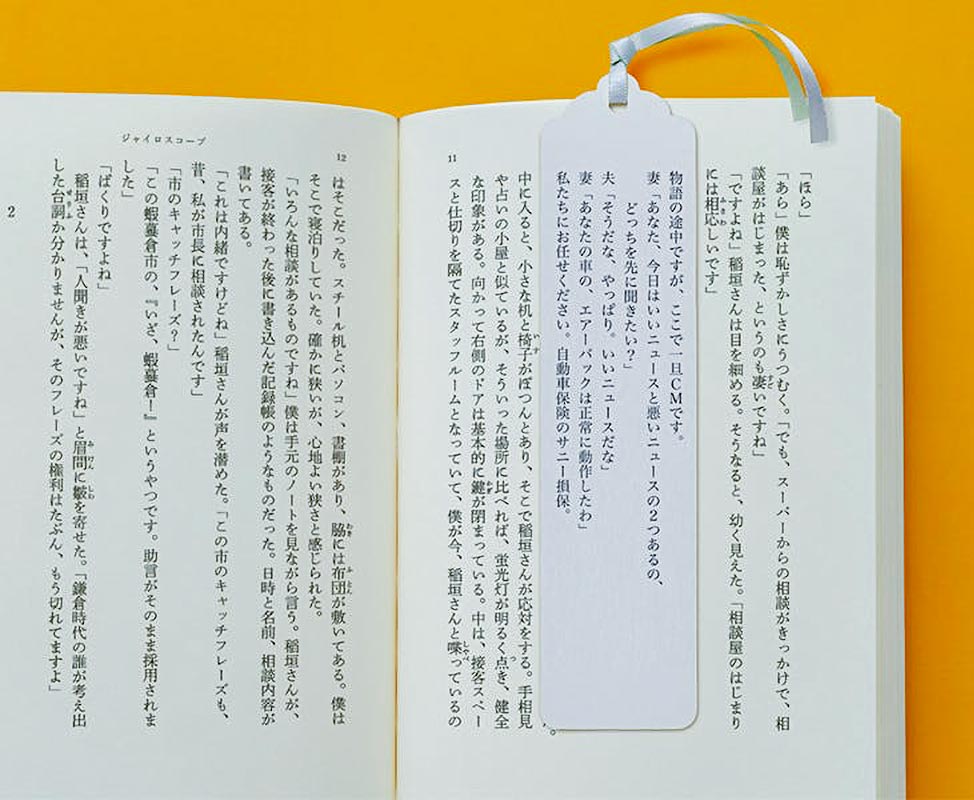 「ほら」
「あら」僕は恥ずかしさにうつむく。「でも、スーパーからの相談がきっかけで、相
談屋がはじまった、というのも凄いですね」
「ですよね」稲垣さんは目を細める。そうなると、幼く見えた。「相談屋のはじまり
には相応しいです」
物語の途中ですが、ここで一旦CMです。
妻「あなた、今日はいいニュースと悪いニュースの2つあるの、
どっちを先に聞きたい?」
夫「そうだな、やっぱり。いいニュースだな」
妻「あなたの車の、エアーバックは正常に動作したわ」
私たちにお任せください。自動車保険のサニー損保。
中に入ると、小さな机と椅子がぽつんとあり、そこで稲垣さんが応対をする。手相見
や占いの小屋と似ているが、そういった場所に比べれば、蛍光灯が明るく点き、健全
な印象がある。向かって右側のドアは基本的に鍵が閉まっている。中は、接客スペー
スと仕切りを隔てたスタッフルームとなっていて、僕が今、稲垣さんと喋っているの
11
ジャイロスコープ
12
はそこだった。スチール机とパソコン、書棚があり、脇には布団が敷いてある。僕は
そこで寝泊りしていた。確かに狭いが、心地よい狭さと感じられた。
「いろんな相談があるものですね」僕は手元のノートを見ながら言う。稲垣さんが、
接客が終わった後に書き込んだ記録帳のようなものだった。日時と名前、相談内容が
書いてある。
「これは内緒ですけどね」稲垣さんが声を潜めた。「この市のキャッチフレーズも、
昔、私が市長に相談されたんです」
「市のキャッチフレーズ?」
「この蝦蟇倉市の、『いざ、蝦蟇倉!』というやつです。助言がそのまま採用されま
した」
「ぱくりですよね」
稲垣さんは、「人聞きが悪いですね」と眉間に皺を寄せた。「鎌倉時代の誰が考え出
した台詞か分かりませんが、そのフレーズの権利はたぶん、もう切れてますよ」
2